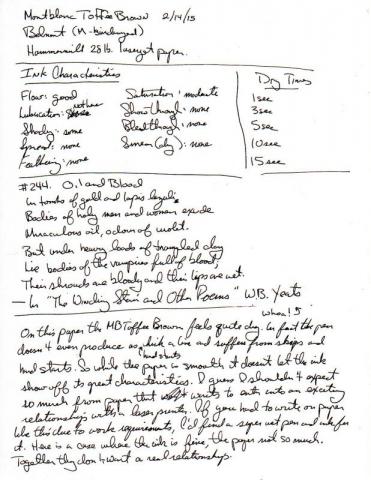 Montblanc Toffee Brown 2/14/15
Belmont (M-binderized)
Hammermill 28 lb. laserjet paper.
Ink Characteristics
Dry Times
Flow: good
Saturation: moderate
1 sec
Lubrication: not here
Show through: none
3 sec
Shading: some
Bleedthrough: none
5 sec
Spread: none
Smear (dry): none
10 sec
Feathering: none
15 sec
#244. Oil and Blood
In tombs of gold and lapis lazuli
Bodies of holy men and women exude
Miraculous oil, odour of violet.
But under heavy loads of trampled clay
Lie bodies of the vampires full of blood;
Their shrouds are bloody and their lips are wet.
— In "The Winding Stair and Other Poems" W.B. Yeats
whoa!
On this paper the MB Toffee Brown feels quite dry. In fact the pen
doesn't even produce as thick a line and suffers from skips and
hard starts. So while the paper is smooth it doesn't let the ink
show off its great characteristics. I guess I shouldn't expect
so much from paper that wasn't meant to enter into an exciting
relationship with a laser printer. If you had to write on paper
like this due to work requirements, I'd find a super wet pen and ink for
it. Here is a case where the ink is fine, the paper not so much.
Together they don't want a real relationship.